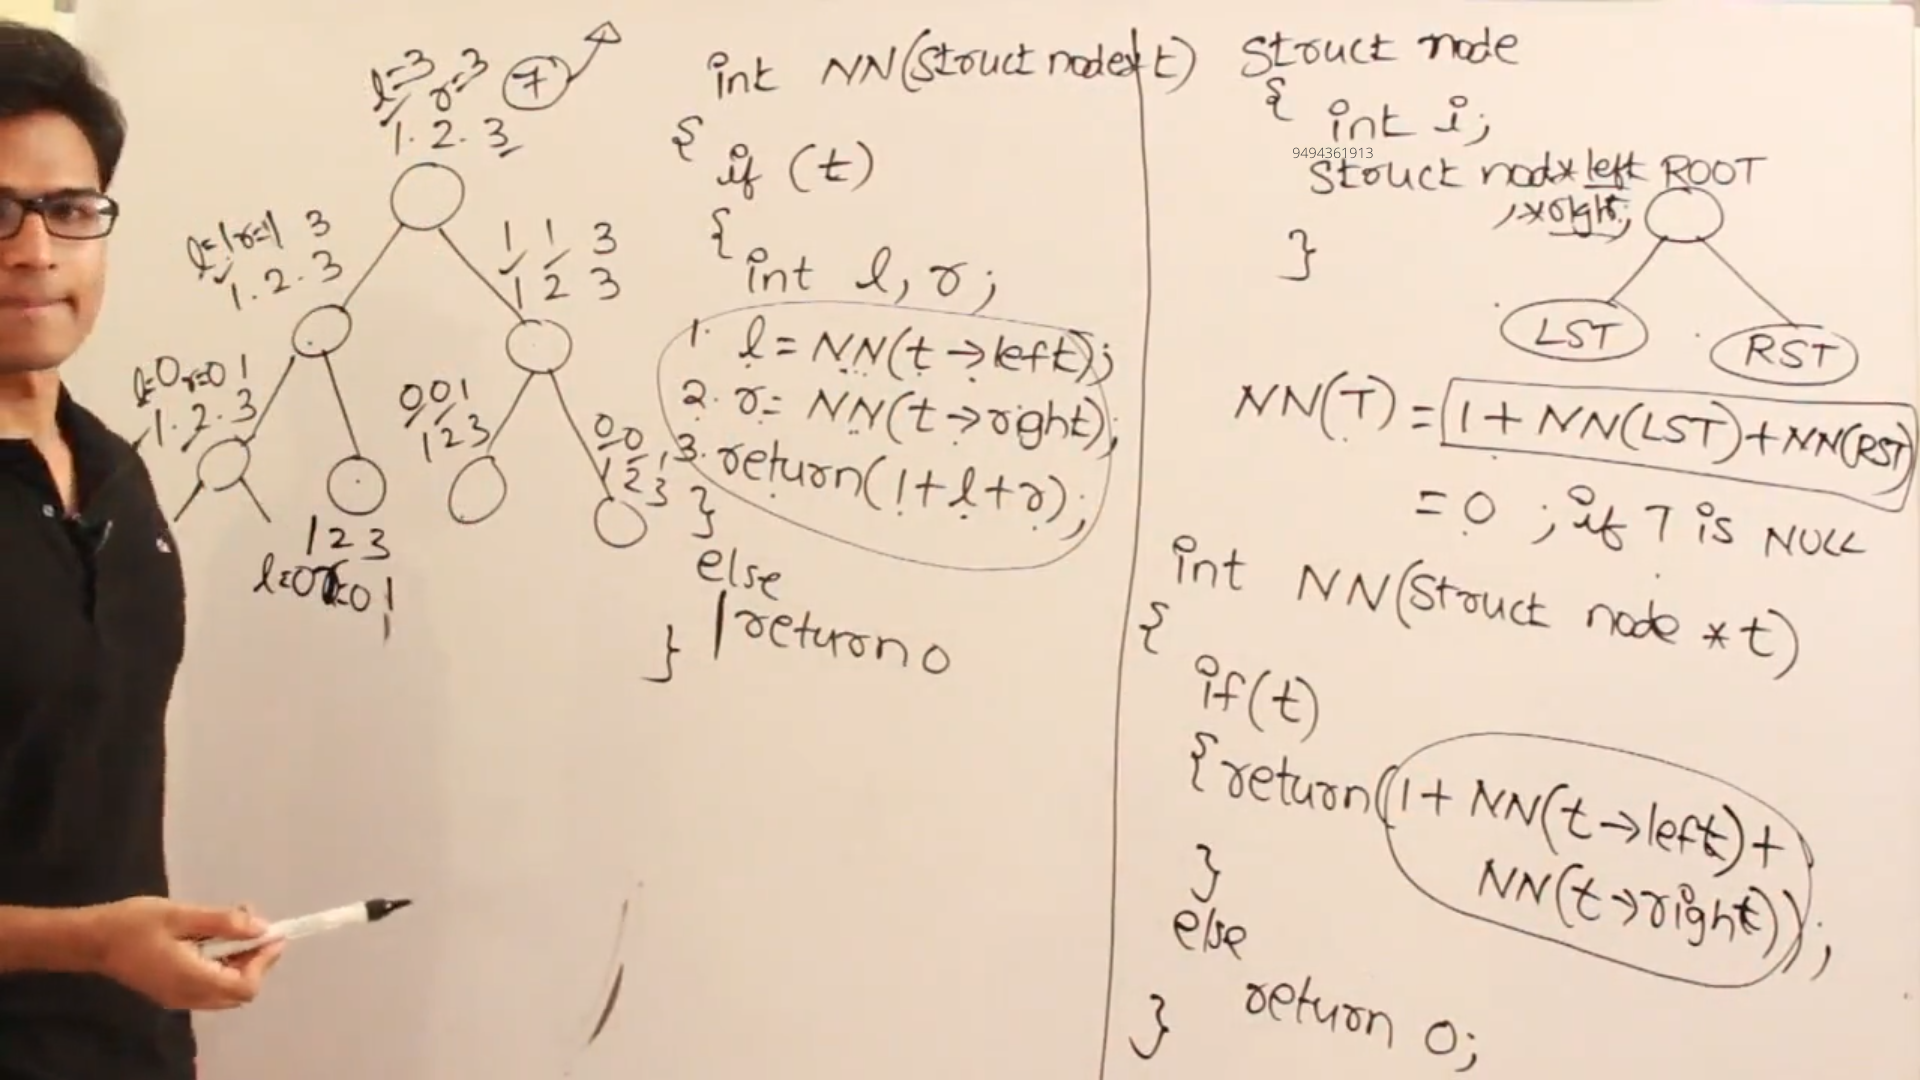 l=3 r=3 7
1. 2. 3
l=1 r=1 3
1. 2. 3
1 1 3
1 2 3
l=0 r=0 1
1. 2. 3
0 0 1
1 2 3
0 0 1
1 2 3
1 2 3
l=0 r=0 1
int NN(Struct node*t)
{
if (t)
{
int l, r;
1. l = NN(t→left);
2. r = NN(t→right);
3. return(1+l+r);
}
else
return 0
}
Struct node
{
int i;
9494361913
Struct nod* left
, *right;
}
ROOT
LST
RST
NN(T) = 1 + NN(LST)+NN(RST)
= 0 ; if T is NULL
int NN(Struct node *t)
{
if(t)
{ return(1+ NN(t→left)+
NN(t→right));
}
else
return 0;
}